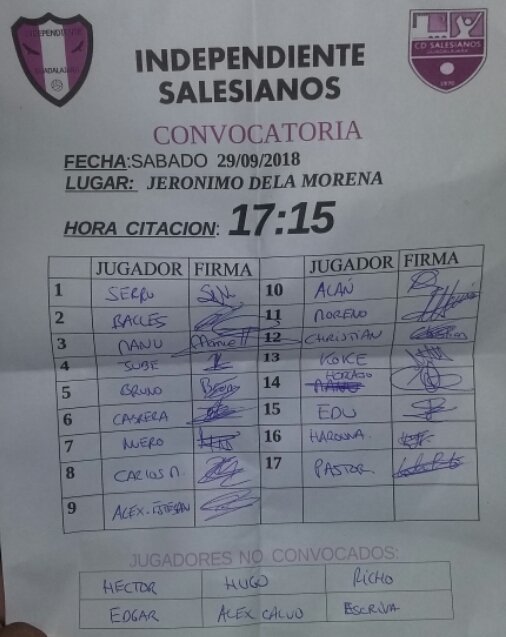 INDEPENDIENTE
GUADALAJARA
CD SALESIANOS
GUADALAJARA
INDEPENDIENTE
SALESIANOS
CONVOCATORIA
FECHA:SABADO 29/09/2018
LUGAR: JERONIMO DELA MORENA
HORA CITACION: 17:15
JUGADOR FIRMA JUGADOR FIRMA
1 SERRU 10 ALAN
2 BALLES 11 MORENO
3 MANU 12 CHRISTIAN
4 SUBE 13 KOKE
5 BRUNO 14 HORACIO
6 CABRERA 15 EDU
7 NUERO 16 HAROUNA.
8 CARLOS M. 17 PASTOR.
9 ALEX. ESTEBAN
JUGADORES NO CONVOCADOS:
HECTOR HUGO RICHO
EDGAR ALEX CALVO ESCRIVA